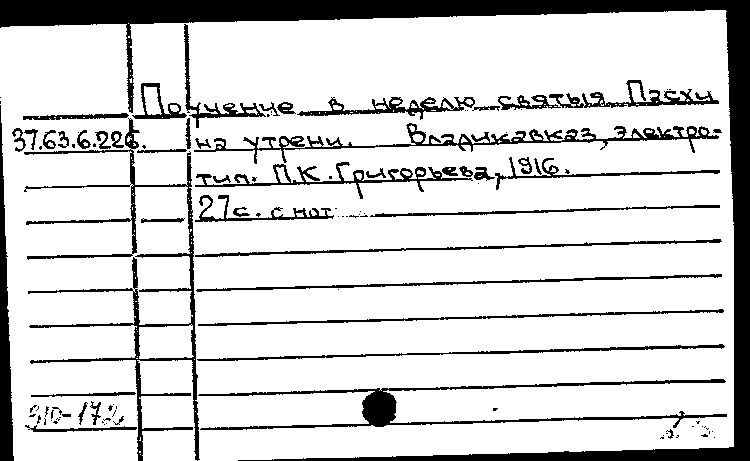 Поучение в неделю святыя Пасхи
37.63.6.226. на утрени. Владикавказ, электро-
тип. П.К. Григорьева, 1916.
27с. с нот
310-172